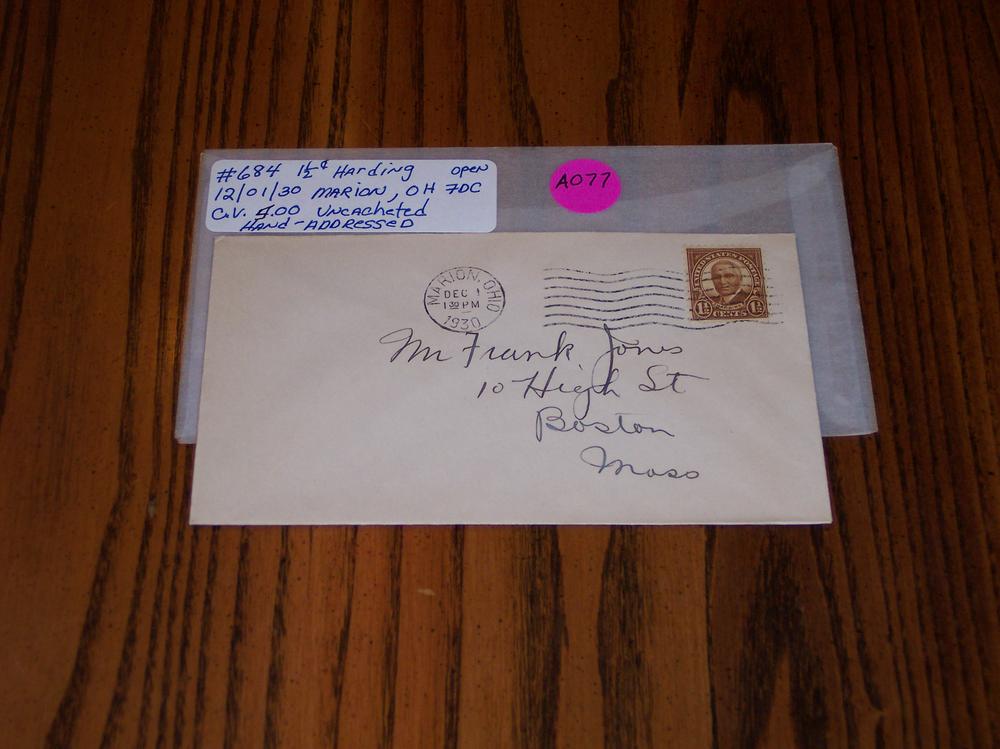 #684 1½¢ Harding open
12/01/30 MARION, OH 7DC
C.V. 4.00 Uncacheted
HAND-ADDRESSED
A077
MARION, OHIO
DEC 1
1 30 PM
1930
UNITED STATES POSTAGE
1½ CENTS 1½
Mr Frank Jones
10 High St
Boston
Mass